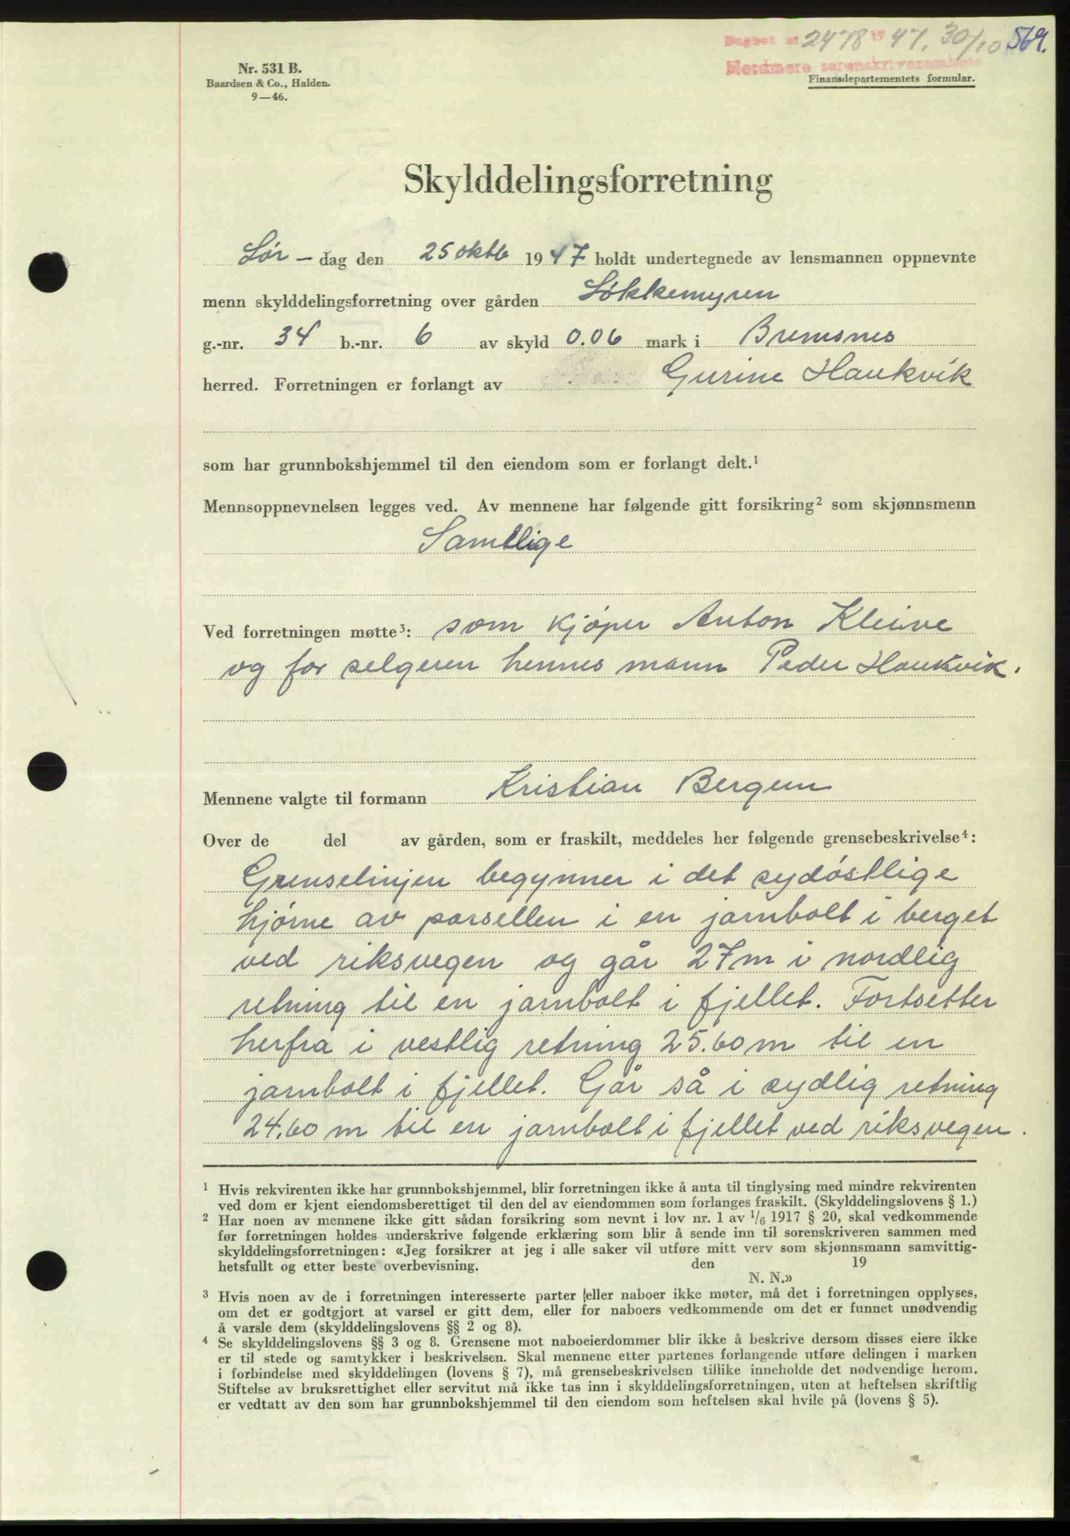 Dagbok nr 2478 19 47. 30/10 569.
Nordmøre sorenskriverembete
Nr. 531 B.
Baardsen & Co., Halden.
9—46.
Finansdepartementets formular.
Skylddelingsforretning
Lør – dag den 25 oktb 1947 holdt undertegnede av lensmannen oppnevnte
menn skylddelingsforretning over gården Løkkemyren
g.-nr. 34 b.-nr. 6 av skyld 0.06 mark i Bremsnes
herred. Forretningen er forlangt av Gurine Haukvik
som har grunnbokshjemmel til den eiendom som er forlangt delt.¹
Mennsoppnevnelsen legges ved. Av mennene har følgende gitt forsikring² som skjønnsmenn
Samtlige
Ved forretningen møtte³: som kjøper Anton Kleive
og for selgeren hennes mann Peder Haukvik.
Mennene valgte til formann Kristian Bergum
Over de del av gården, som er fraskilt, meddeles her følgende grensebeskrivelse⁴:
Grenselinjen begynner i det sydøstlige
hjørne av parsellen i en jarnbolt i berget
ved riksvegen og går 27m i nordlig
retning til en jarnbolt i fjellet. Fortsetter
herfra i vestlig retning 25.60 m til en
jarnbolt i fjellet. Går så i sydlig retning
24.60 m til en jarnbolt i fjellet ved riksvegen.
¹ Hvis rekvirenten ikke har grunnbokshjemmel, blir forretningen ikke å anta til tinglysing med mindre rekvirenten
ved dom er kjent eiendomsberettiget til den del av eiendommen som forlanges fraskilt. (Skylddelingslovens § 1.)
² Har noen av mennene ikke gitt sådan forsikring som nevnt i lov nr. 1 av 1/6 1917 § 20, skal vedkommende
før forretningen holdes underskrive følgende erklæring som blir å sende inn til sorenskriveren sammen med
skylddelingsforretningen: «Jeg forsikrer at jeg i alle saker vil utføre mitt verv som skjønnsmann samvittig-
hetsfullt og etter beste overbevisning. den 19
N. N.»
³ Hvis noen av de i forretningen interesserte parter eller naboer ikke møter, må det i forretningen opplyses,
om det er godtgjort at varsel er gitt dem, eller for naboers vedkommende om det er funnet unødvendig
å varsle dem (skylddelingslovens §§ 2 og 8).
⁴ Se skylddelingslovens §§ 3 og 8. Grensene mot naboeierdommer blir ikke å beskrive dersom disses eiere ikke
er til stede og samtykker i beskrivelsen. Skal mennene etter partenes forlangende utføre delingen i marken
i forbindelse med skylddelingen (lovens § 7), må grensebeskrivelsen tillike inneholde det nødvendige herom.
Stiftelse av bruksrettighet eller servitut må ikke tas inn i skylddelingsforretningen, uten at heftelsen skriftlig
er vedtatt av den som har grunnbokshjemmel til den eiendom som heftelsen skal hvile på (lovens § 5).